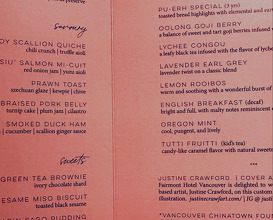 savoury
OY SCALLION QUICHE
chili crunch | truffle aioli
SIU' SALMON MI-CUIT
red onion jam | yuzu aioli
PRAWN TOAST
szechuan glaze | kewpie | dime
BRAISED PORK BELLY
turnip cake | plum jam | cilantro
SMOKED DUCK HAM
| cucumber | scallion ginger sauce
sweets
GREEN TEA BROWNIE
ivory chocolate shard
SESAME MISO BISCUIT
toasted black sesame
SAGO PUDDING
PU-ERH SPECIAL (7 yrs)
toasted bread highlights with elemental and eart
OOLONG GOJI BERRY
a balance of sweet and tart goji berries infused v
LYCHEE CONGOU
a leafy black tea infused with the flavor of lyche
LAVENDER EARL GREY
lavender twist on a classic blend
LEMON ROOIBOS
warm and soothing with a wonderful burst of
ENGLISH BREAKFAST (decaf)
bright and full, with malty notes reminiscent
OREGON MINT
cool, pungent, and lively
TUTTI FRUITTI (kid's tea)
candy-like caramel flavor with natural sweetn
...
JUSTINE CRAWFORD | COVER A
Fairmont Hotel Vancouver is delighted to w
based artist, Justine Crawford, on this custom
illustration. justinecrawfordart.com/ | IG @ justi
*VANCOUVER CHINATOWN FO